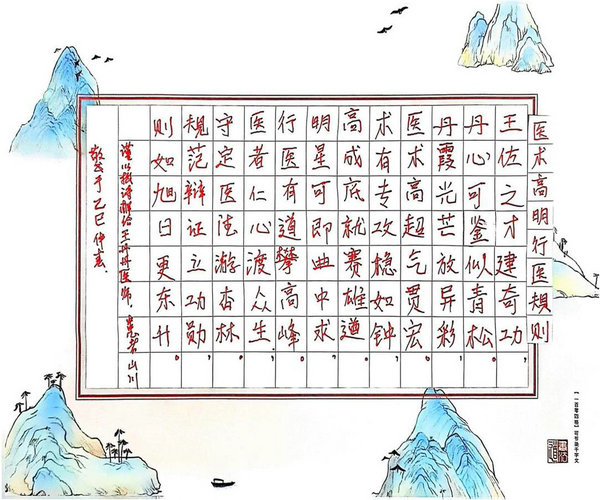 医术高明行医规则
王佐之才建奇功,
丹心可鉴似青松。
丹霞光芒放异彩,
医术高超气贯宏。
术有专攻稳如钟,
高成底就赛雄遒。
明星可即曲中求,
行医有道攀高峰。
医者仁心渡众生,
守定医德游杏林。
规范辩证立功勋,
则如旭日更东升。
谨以诗给王丹丹医师,山川
敬于乙巳仲夏、
【一百零四格】可书染千字文